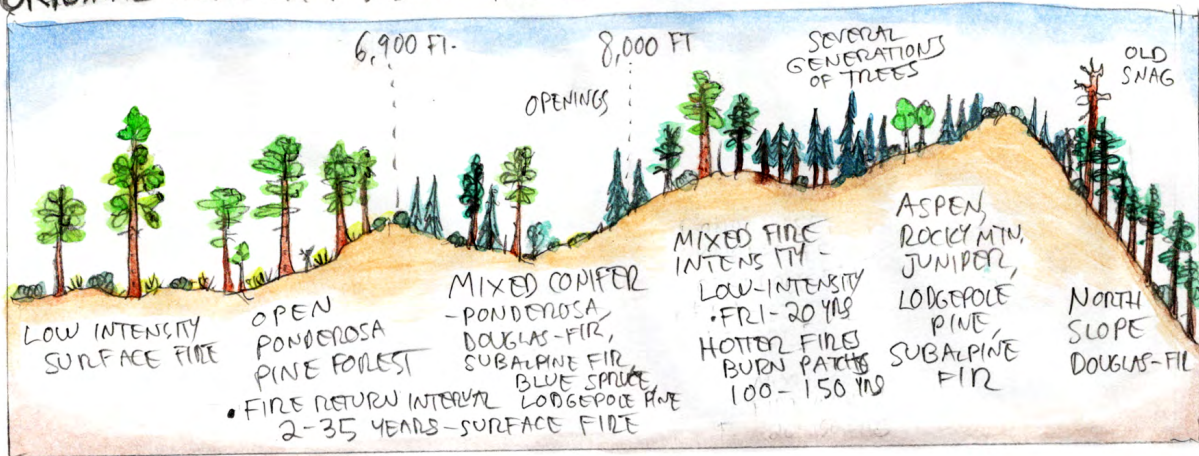 6,900 FT.
8,000 FT
OPENINGS
SEVERAL
GENERATIONS
OF TREES
OLD
SNAG
LOW INTENSITY
SURFACE FIRE
OPEN
PONDEROSA
PINE FOREST
• FIRE RETURN INTERVAL
2-35 YEARS - SURFACE FIRE
MIXED CONIFER
- PONDEROSA,
DOUGLAS-FIR,
SUBALPINE FIR,
BLUE SPRUCE,
LODGEPOLE PINE
MIXED FIRE
INTENSITY -
LOW-INTENSITY
• FRI - 20 YRS
HOTTER FIRES
BURN PATCHES
100-150 YRS
ASPEN,
ROCKY MTN.
JUNIPER,
LODGEPOLE
PINE,
SUBALPINE
FIR
NORTH
SLOPE
DOUGLAS-FIR